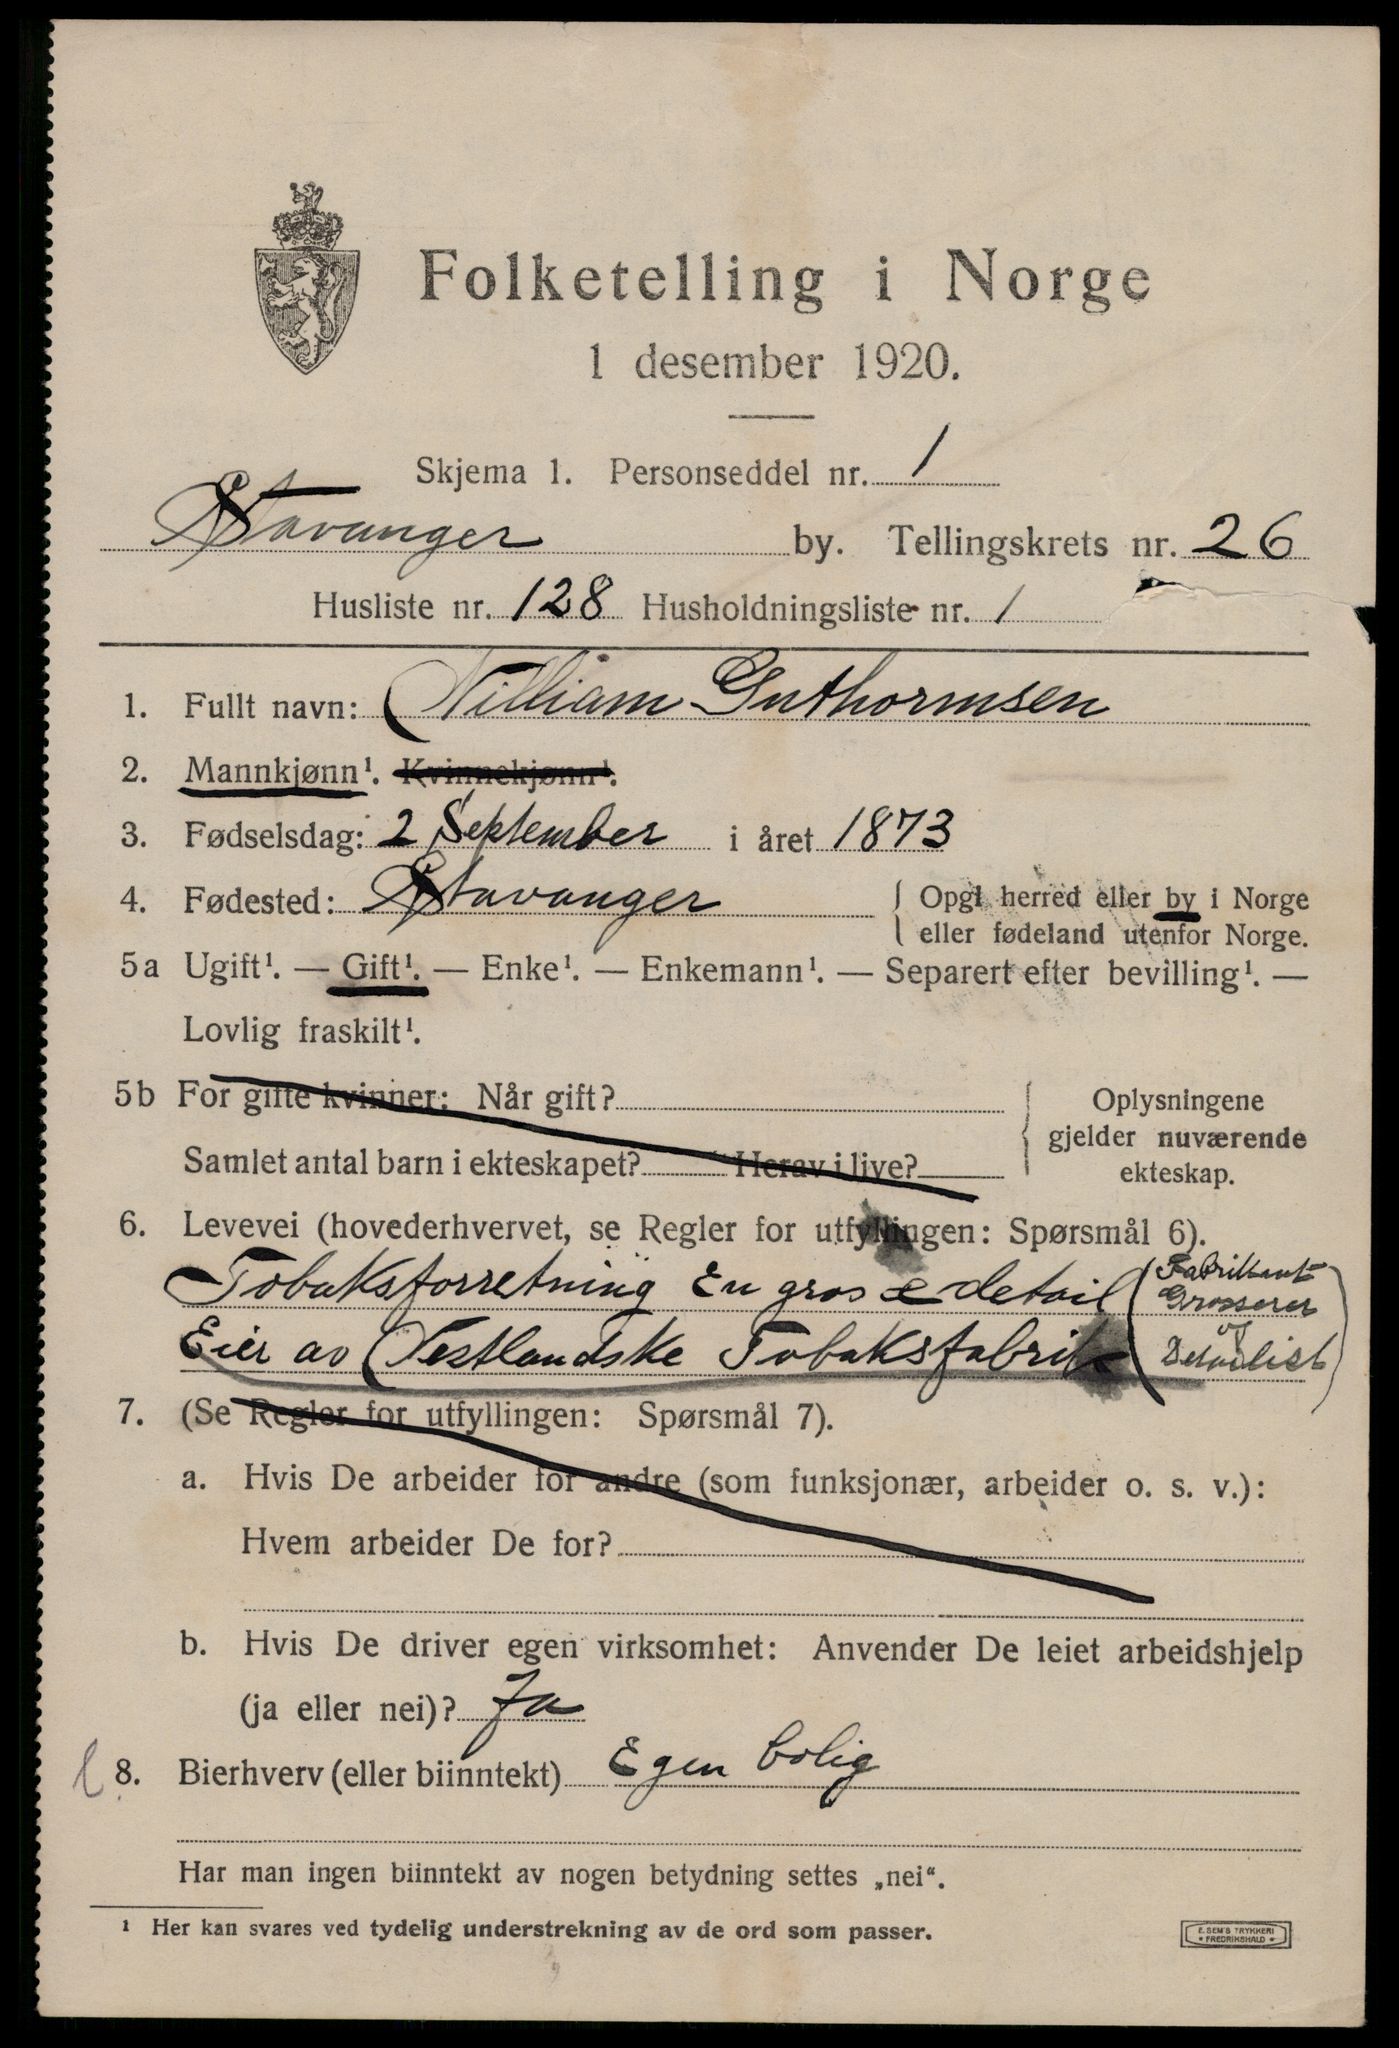 Folketelling i Norge
1 desember 1920.
Skjema 1. Personseddel nr. 1
Stavanger by. Tellingskrets nr. 26
Husliste nr. 128 Husholdningsliste nr. 1
1. Fullt navn: William Guthormsen
2. Mannkjønn¹. Kvinnekjønn¹.
3. Fødselsdag: 2 September i året 1873
4. Fødested: Stavanger { Opgi herred eller by i Norge
eller fødeland utenfor Norge.
5a Ugift¹. — Gift¹. — Enke¹. — Enkemann¹. — Separert efter bevilling¹. —
Lovlig fraskilt¹.
5b For gifte kvinner: Når gift?
Samlet antal barn i ekteskapet? Herav i live?
Oplysningene
gjelder nuværende
ekteskap.
6. Levevei (hovederhvervet, se Regler for utfyllingen: Spørsmål 6).
Tobaksforretning En gros & detail (Fabrikant
Grosserer
Eier av Vestlandske Tobaksfabrik
og
Detailist)
7. (Se Regler for utfyllingen: Spørsmål 7).
a. Hvis De arbeider for andre (som funksjonær, arbeider o. s. v.):
Hvem arbeider De for?
b. Hvis De driver egen virksomhet: Anvender De leiet arbeidshjelp
(ja eller nei)? Ja
8. Bierhverv (eller biinntekt) Egen bolig
Har man ingen biinntekt av nogen betydning settes „nei“.
¹ Her kan svares ved tydelig understrekning av de ord som passer.
E. SEM'S TRYKKERI
* FREDRIKSHALD *